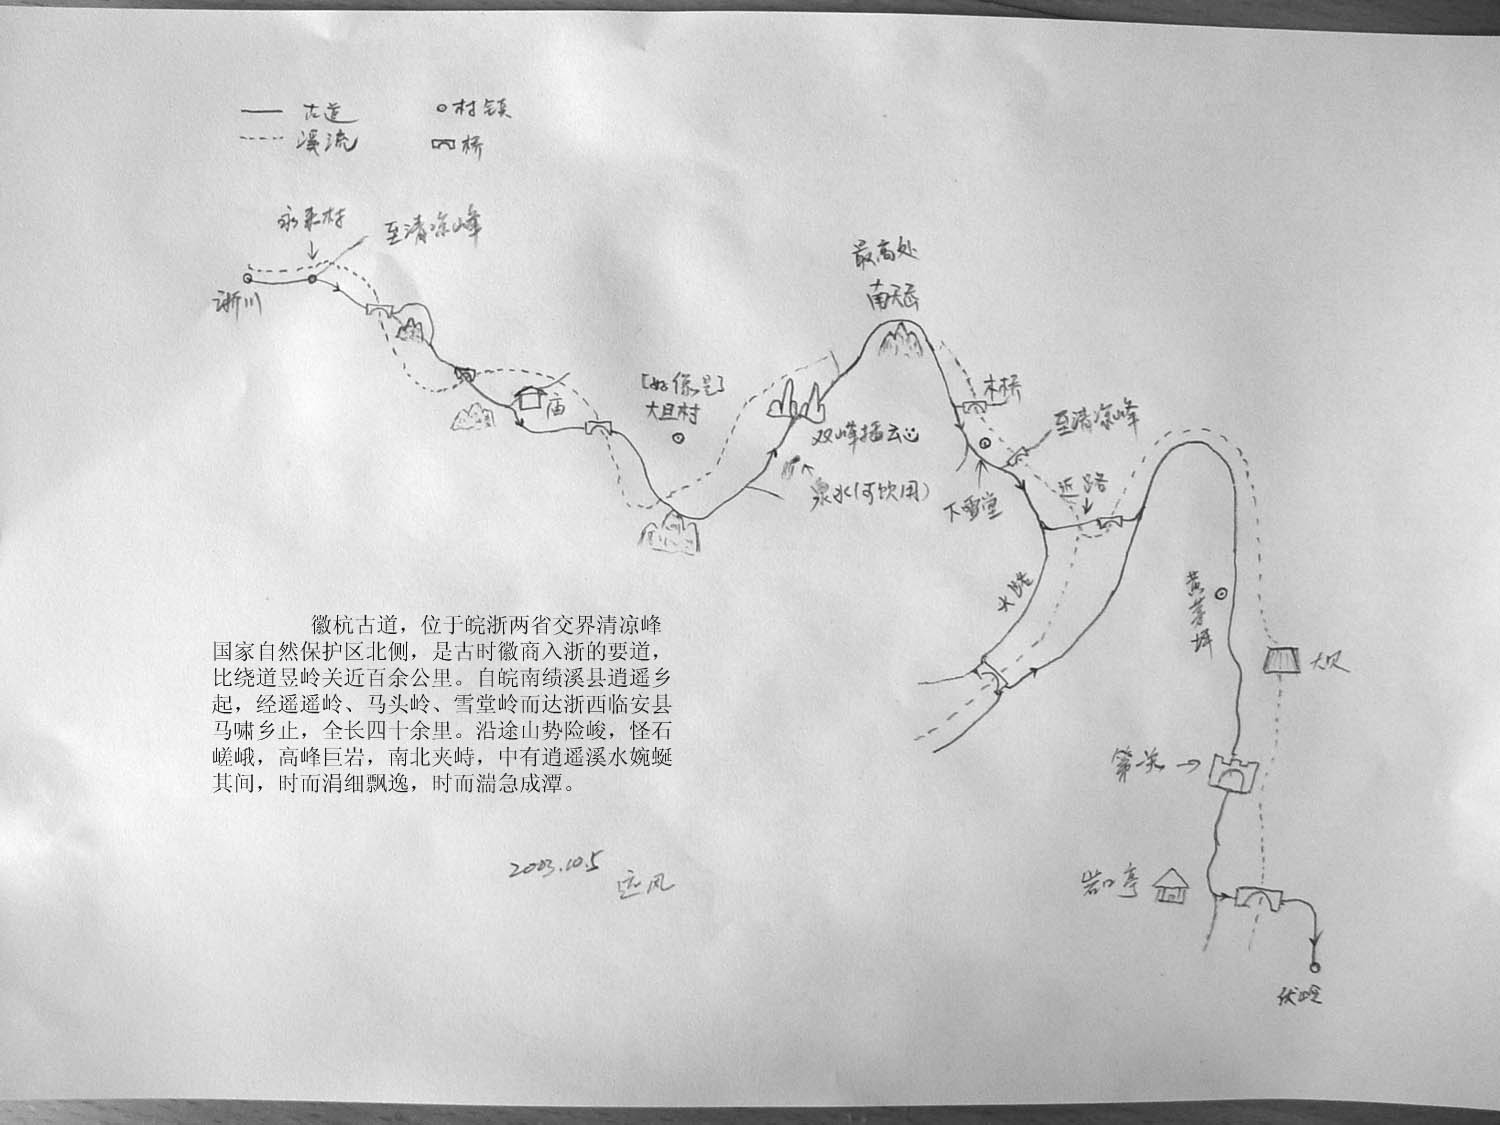 古道
村镇
溪流
桥
永来村
至清凉峰
浙川
最高处
南天
庙
[好像是]
大且村
双峰插云
泉水(可饮用)
木桥
至清凉峰
下雪堂
近路
大路
黄茅坪
大贝
岩口亭
伏岭
徽杭古道，位于皖浙两省交界清凉峰
国家自然保护区北侧，是古时徽商入浙的要道，
比绕道昱岭关近百余公里。自皖南绩溪县逍遥乡
起，经遥遥岭、马头岭、雪堂岭而达浙西临安县
马啸乡止，全长四十余里。沿途山势险峻，怪石
嵯峨，高峰巨岩，南北夹峙，中有逍遥溪水婉蜒
其间，时而涓细飘逸，时而湍急成潭。
2003.10.5
远风